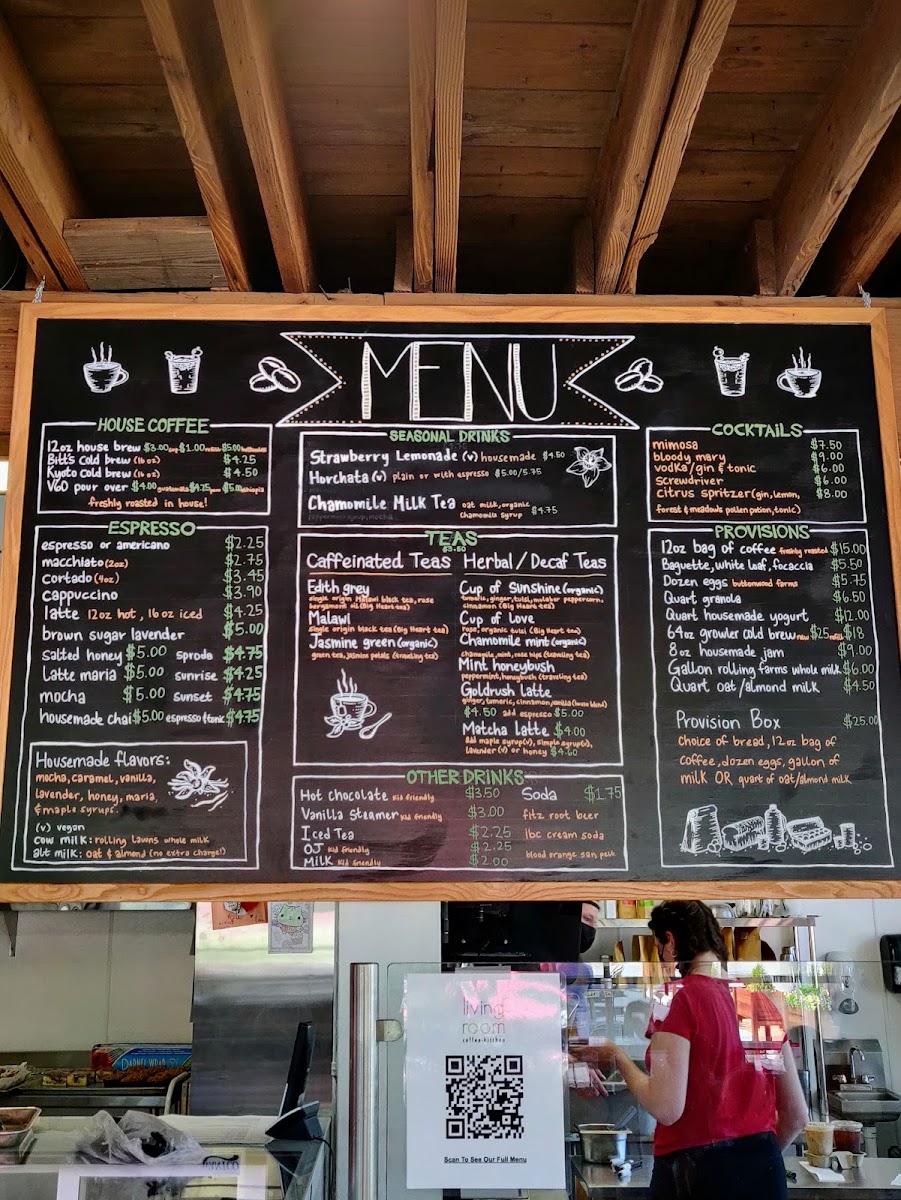 MENU
HOUSE COFFEE
12oz house brew $3.00 $1.00 $5.00
Bitts cold brew (16oz) $4.25
Kyoto cold brew $4.50
V60 pour over $4.00 guatemala $4.25 $5.00 ethiopia
freshly roasted in house!
ESPRESSO
espresso or americano $2.25
macchiato (2oz) $2.75
cortado (4oz) $3.45
cappuccino $3.90
latte 12oz hot, 16oz iced $4.25
brown sugar lavender $5.00
salted honey $5.00 Sproda $4.75
Latte maria $5.00 sunrise $4.25
mocha $5.00 Sunset $4.75
housemade chai $5.00 espresso & tonic $4.75
Housemade flavors:
mocha, caramel, vanilla,
lavender, honey, maria,
& maple syrups.
(v) vegan
cow milk: rolling lawns whole milk
alt milk: oat & almond (no extra charge!)
SEASONAL DRINKS
Strawberry Lemonade (v) housemade $4.50
Horchata (v) plain or with espresso $5.00/5.75
Chamomile Milk Tea oat milk, organic
chamomile syrup $4.75
TEAS
$3.50
Caffeinated Teas
Edith grey
single origin Malawi black tea, rose
bergamont oil (Big Heart tea)
Malawi
single origin black tea (Big Heart tea)
Jasmine green (organic)
green tea, jasmine petals (traveling tea)
Herbal/Decaf Teas
Cup of Sunshine (organic)
tumeric, ginger, tulsi, malabar peppercorn,
cinnamon (Big Heart tea)
Cup of Love
rose, organic tulsi (Big Heart tea)
Chamomile mint (organic)
chamomile, mint, rose hips (traveling tea)
Mint honeybush
peppermint, honeybush (traveling tea)
Goldrush latte
ginger, tumeric, cinnamon, vanilla (house blend)
$4.50 add espresso $5.00
Matcha latte $4.00
add maple syrup (v), simple syrup (v),
lavender (v) or honey $4.60
OTHER DRINKS
Hot chocolate kid friendly $3.50
Vanilla Steamer kid friendly $3.00
Iced Tea $2.25
OJ kid friendly $2.25
Milk kid friendly $2.00
Soda $1.75
fitz root beer
ibc cream soda
blood orange san pell
COCKTAILS
mimosa $7.50
bloody mary $9.00
vodka/gin & tonic $6.00
screwdriver $6.00
citrus spritzer (gin, lemon, $8.00
forest & meadows pollen potion, tonic)
PROVISIONS
12oz bag of coffee freshly roasted $15.00
Baguette, white loaf, focaccia $5.50
Dozen eggs buttonwood farms $5.75
Quart granola $6.50
Quart housemade yogurt $12.00
64oz growler cold brew new $25 refill $18
8oz housemade jam $9.00
Gallon rolling farms whole milk $6.00
Quart oat/almond milk $4.50
Provision Box $25.00
choice of bread, 12oz bag of
coffee, dozen eggs, gallon of
milk OR quart of oat/almond milk
living
room
coffee + kitchen
Scan To See Our Full Menu